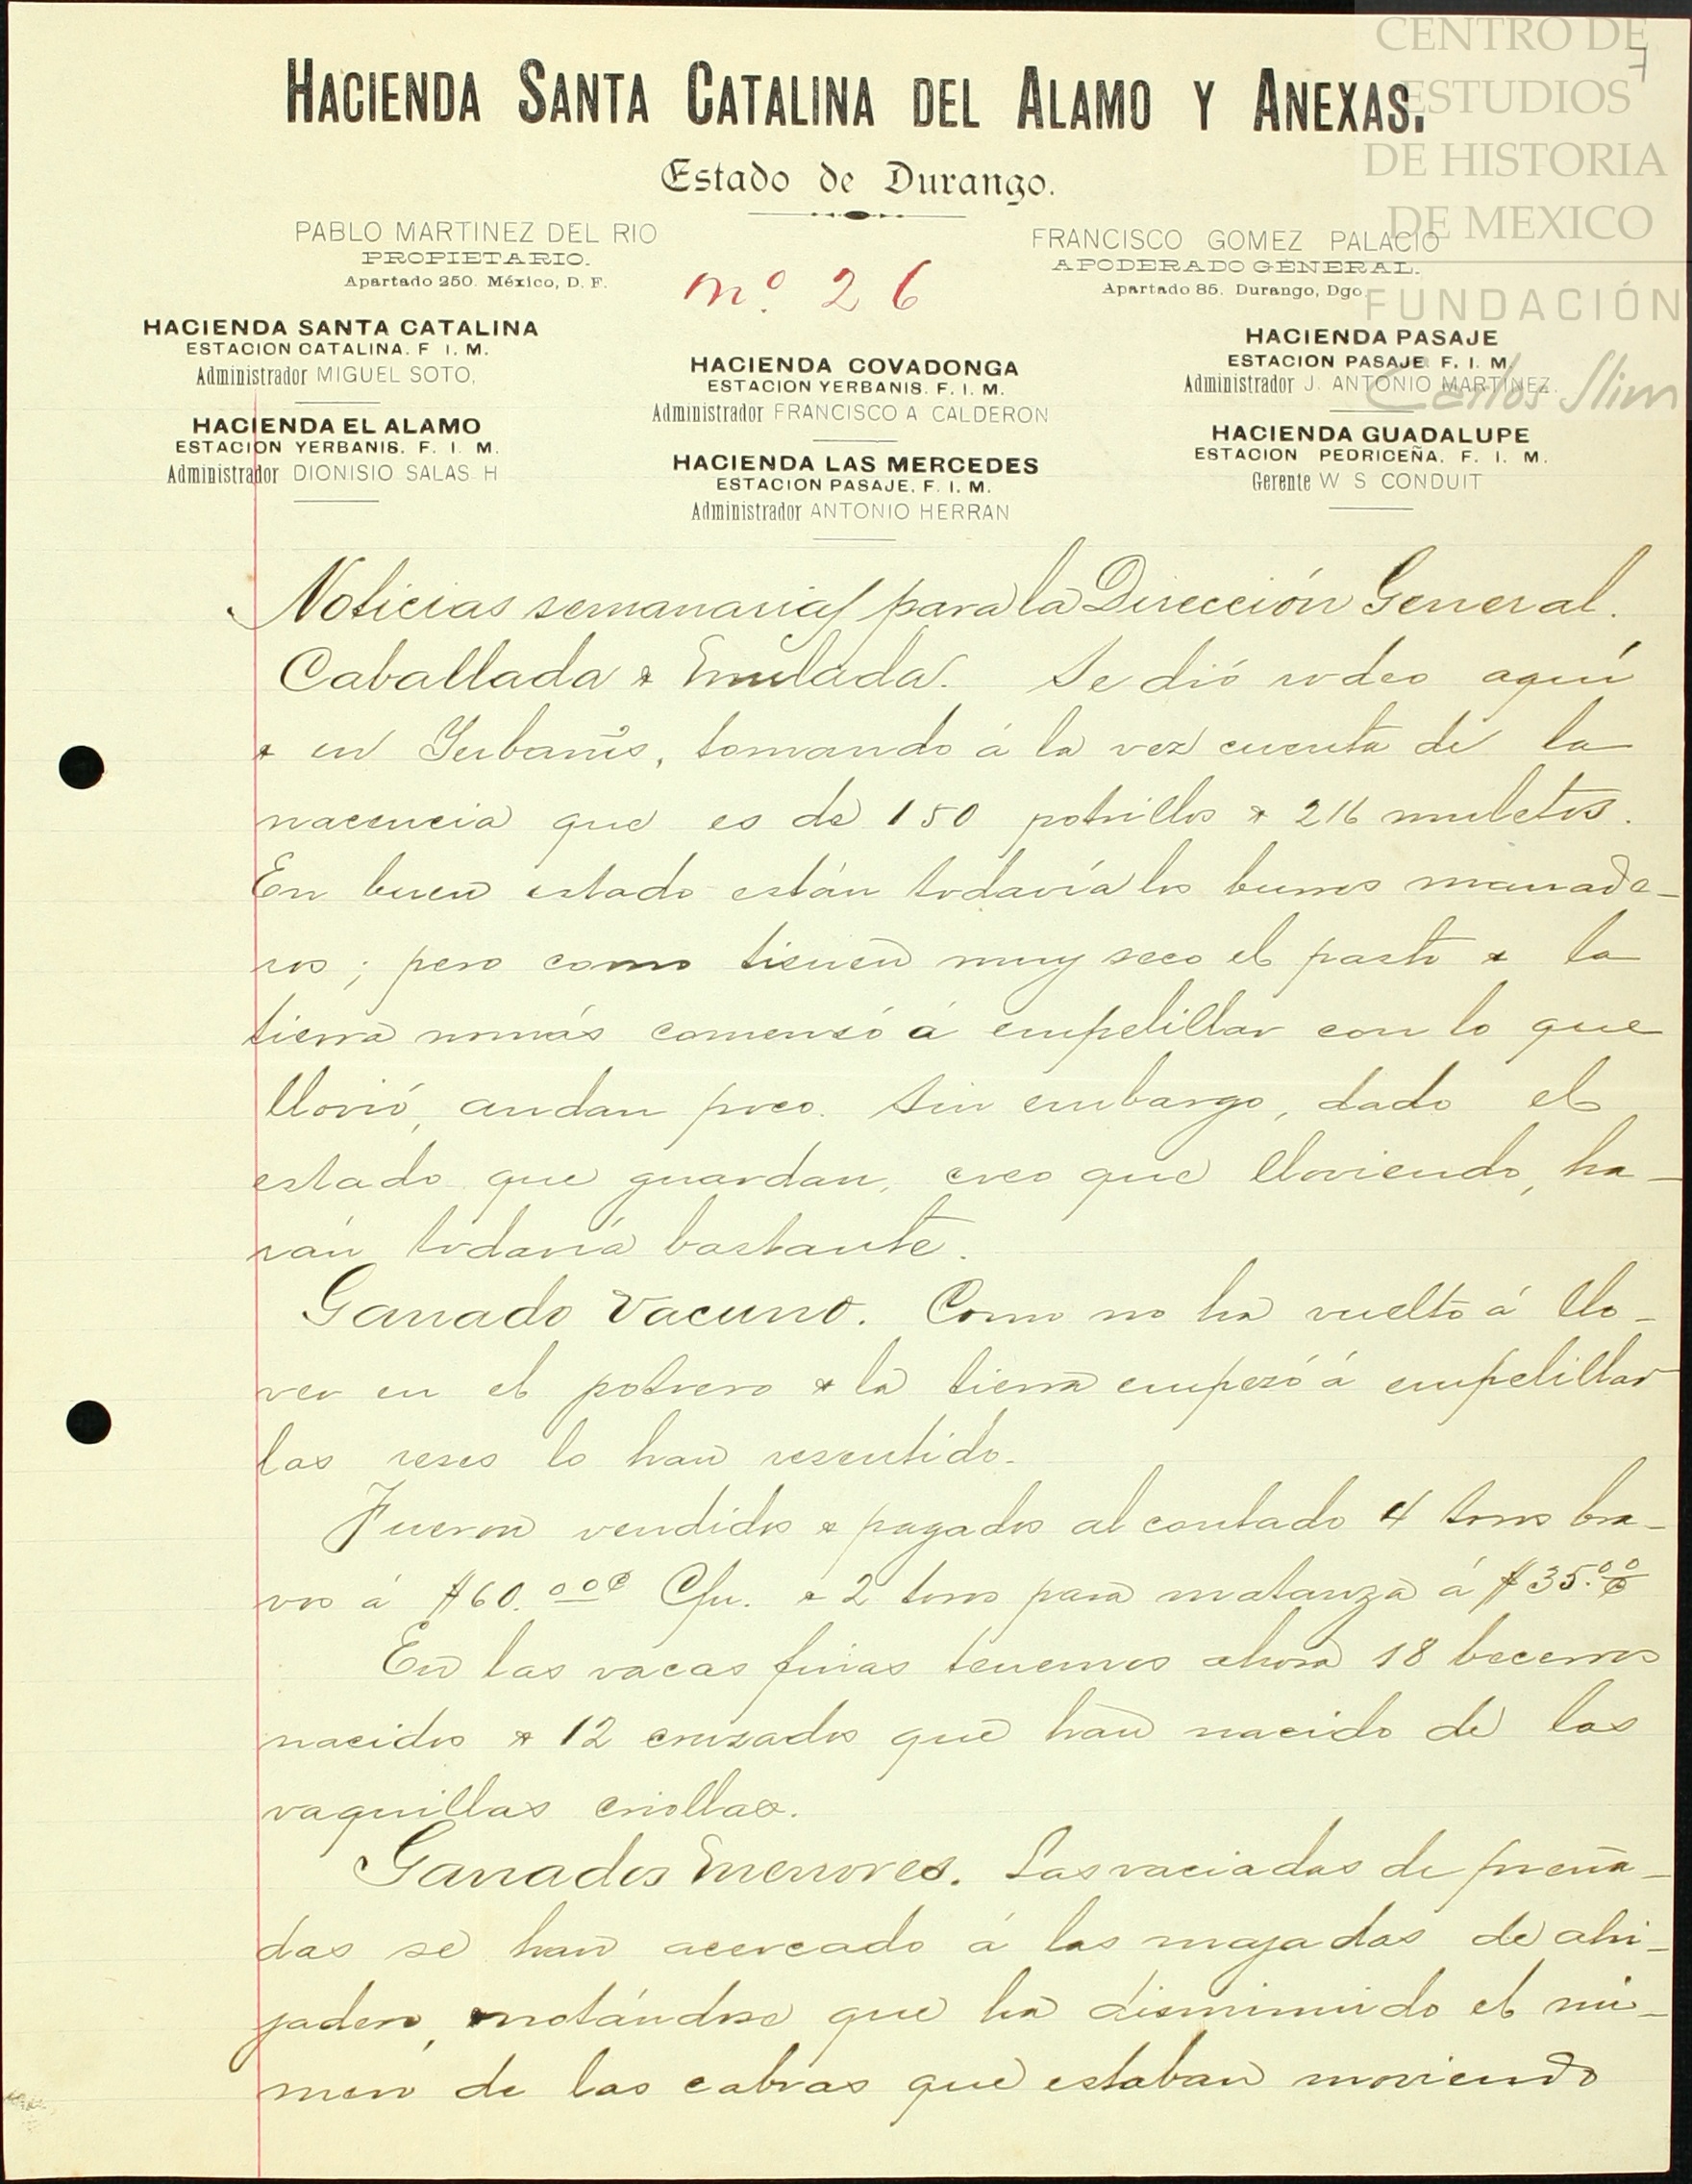 CENTRO DE
ESTUDIOS
DE HISTORIA
DE MEXICO
FUNDACIÓN
Carlos Slim
7
HACIENDA SANTA CATALINA DEL ALAMO Y ANEXAS.
Estado de Durango.
PABLO MARTINEZ DEL RIO
PROPIETARIO.
Apartado 250. México, D. F.
FRANCISCO GOMEZ PALACIO
APODERADO GENERAL.
Apartado 85. Durango, Dgo.
No. 26
HACIENDA SANTA CATALINA
ESTACION CATALINA. F. I. M.
Administrador MIGUEL SOTO,
HACIENDA EL ALAMO
ESTACION YERBANIS. F. I. M.
Administrador DIONISIO SALAS H
HACIENDA COVADONGA
ESTACION YERBANIS. F. I. M.
Administrador FRANCISCO A CALDERON
HACIENDA LAS MERCEDES
ESTACION PASAJE. F. I. M.
Administrador ANTONIO HERRAN
HACIENDA PASAJE
ESTACION PASAJE F. I. M.
Administrador J. ANTONIO MARTINEZ.
HACIENDA GUADALUPE
ESTACION PEDRICEÑA. F. I. M.
Gerente W S CONDUIT
Noticias semanarias para la Dirección General.
Caballada & mulada. Se dió rodeo aquí
& en Yerbanís, tomando á la vez cuenta de la
nacencia que es de 150 potrillos & 216 muletos.
En buen estado están todavía los burros manade-
ros; pero como tienen muy seco el pasto & la
tierra nomás comensó á empelillar con lo que
llovió, andan poco. Sin embargo, dado el
estado que guardan, creo que lloviendo, ha-
rán todavía bastante.
Ganado Vacuno. Como no ha vuelto á llo-
ver en el potrero & la tierra empezó á empelillar
las reses lo han resentido.
Fueron vendidos & pagados al contado 4 toros bra-
vos á $60.00 C/u. & 2 toros para matanza á $35.00
En las vacas finas tenemos ahora 18 becerros
nacidos & 12 cruzados que han nacido de las
vaquillas criollas.
Ganados menores. Las vaciadas de preña-
das se han acercado á las majadas de ahi-
jadero, notándose que ha disminuido el nú-
mero de las cabras que estaban moviendo